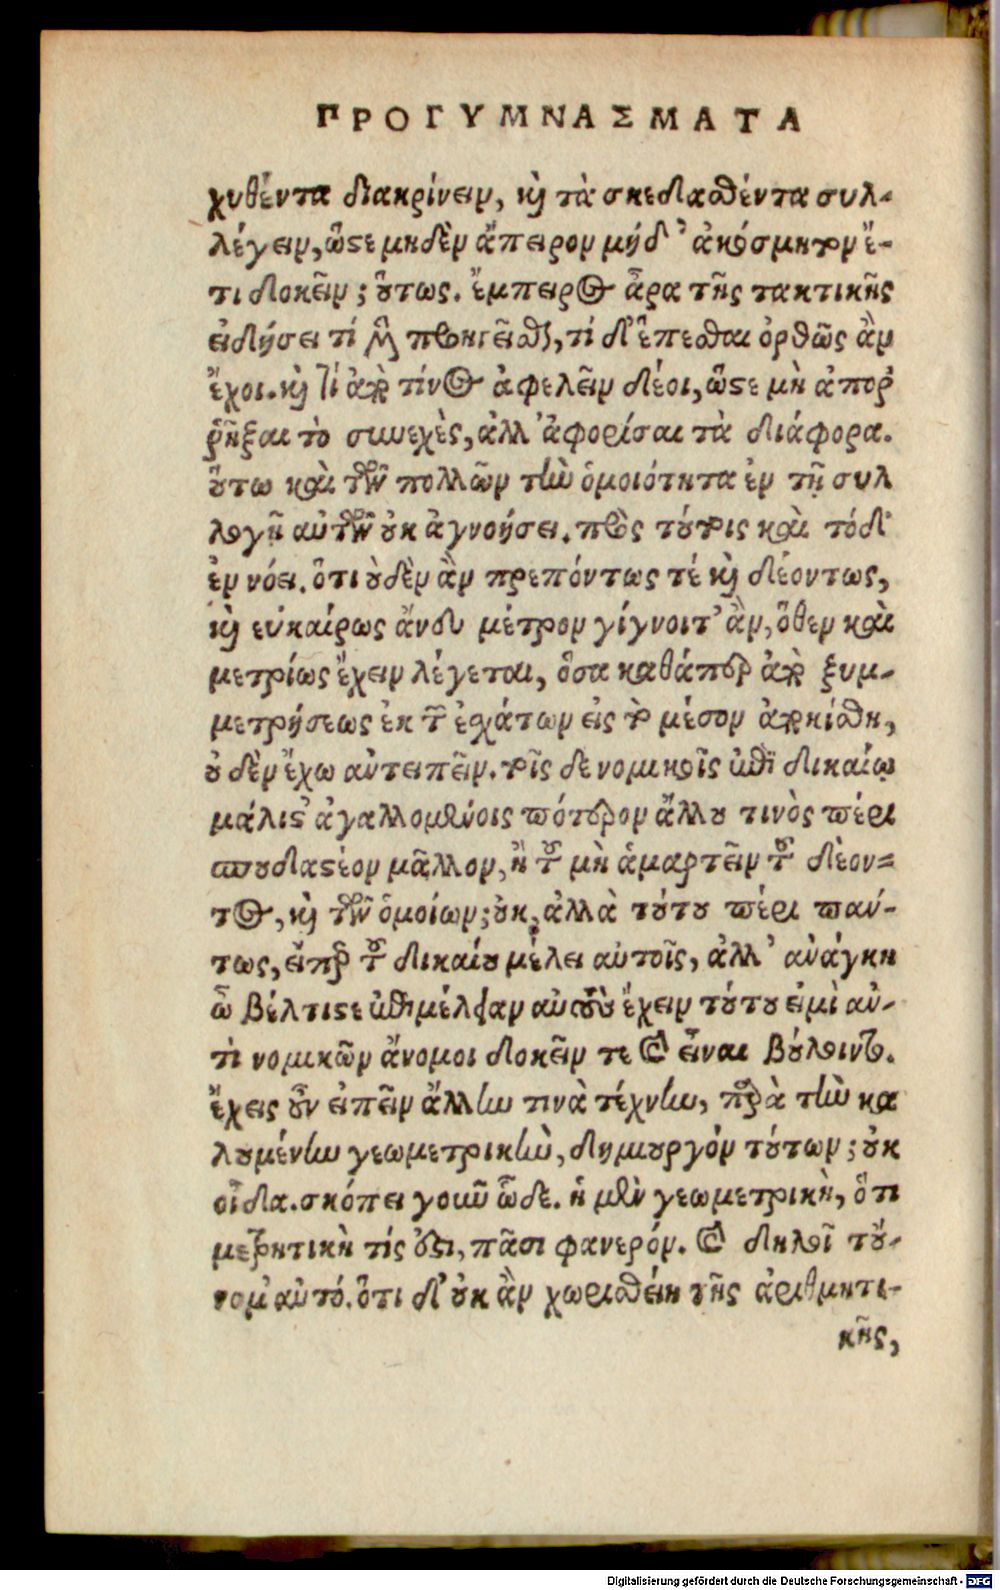 ΠΡΟΓΥΜΝΑΣΜΑΤΑ
χυθέντα διακρίνειν, καὶ τὰ σκεδιασθέντα συλ-
λέγειν, ὥστε μηδὲν ἄπειρον μήδ' ἀκόσμητον ἔ-
τι δοκεῖν; οὕτως. ἔμπειρος ἆρα τῆς τακτικῆς
εἰδήσει τί μὲν προηγεῖσθαι, τί δ' ἕπεσθαι ὀρθῶς ἂν
ἔχοι. καὶ τί ἀπὸ τίνος ἀφελεῖν δέοι, ὥστε μὴ ἀπορ
ῥῆξαι τὸ συνεχὲς, ἀλλ' ἀφορίσαι τὰ διάφορα.
οὕτω καὶ τῶν πολλῶν τὴν ὁμοιότητα ἐν τῇ συλ
λογῇ αὐτῶν οὐκ ἀγνοήσει. πρὸς τούτοις καὶ τόδ'
ἐννόει. ὅτι οὐδὲν ἂν πρεπόντως τέ καὶ δέοντως,
καὶ εὐκαίρως ἄνευ μέτρον γίγνοιτ' ἂν, ὅθεν καὶ
μετρίως ἔχειν λέγεται, ὅσα καθάπερ ἀπὸ ξυμ-
μετρήσεως ἐκ τῶν ἐσχάτων εἰς τὸ μέσον ἀπεκίσθη,
οὐδὲν ἔχω ἀντειπεῖν. τοῖς δε νομικοῖς ἐπὶ δικαίῳ
μάλιστ' ἀγαλλομένοις πότερον ἄλλου τινὸς πέρι
σπουδαστέον μᾶλλον, ἢ τοῦ μὴ ἁμαρτεῖν τοῦ δέον-
τος, καὶ τῶν ὁμοίων; οὐκ, ἀλλὰ τούτου πέρι πάν-
τως, εἴπερ τοῦ δικαίου μέλει αὐτοῖς, ἀλλ' ἀνάγκη
ὦ βέλτιστε ἐπιμέλειαν αὐτοὺς ἔχειν τούτου εἰ μὶ ἀν-
τὶ νομικῶν ἄνομοι δοκεῖν τε καὶ εἶναι βούλοιντο.
ἔχεις οὖν εἰπεῖν ἄλλην τινὰ τέχνην, παρὰ τὴν κα
λουμένην γεωμετρικὴν, δημιουργόν τούτων; οὐκ
οἶδα. σκόπει γοῦν ὧδε. ἡ μὲν γεωμετρικὴ, ὅτι
μετρητικὴ τίς ἐστι, πᾶσι φανερόν. καὶ δηλοῖ τοὔ-
νομ' αὐτό. ὅτι δ' οὐκ ἂν χωρισθείη γῆς ἀριθμητι-
κῆς,
Digitalisierung gefördert durch die Deutsche Forschungsgemeinschaft - DFG